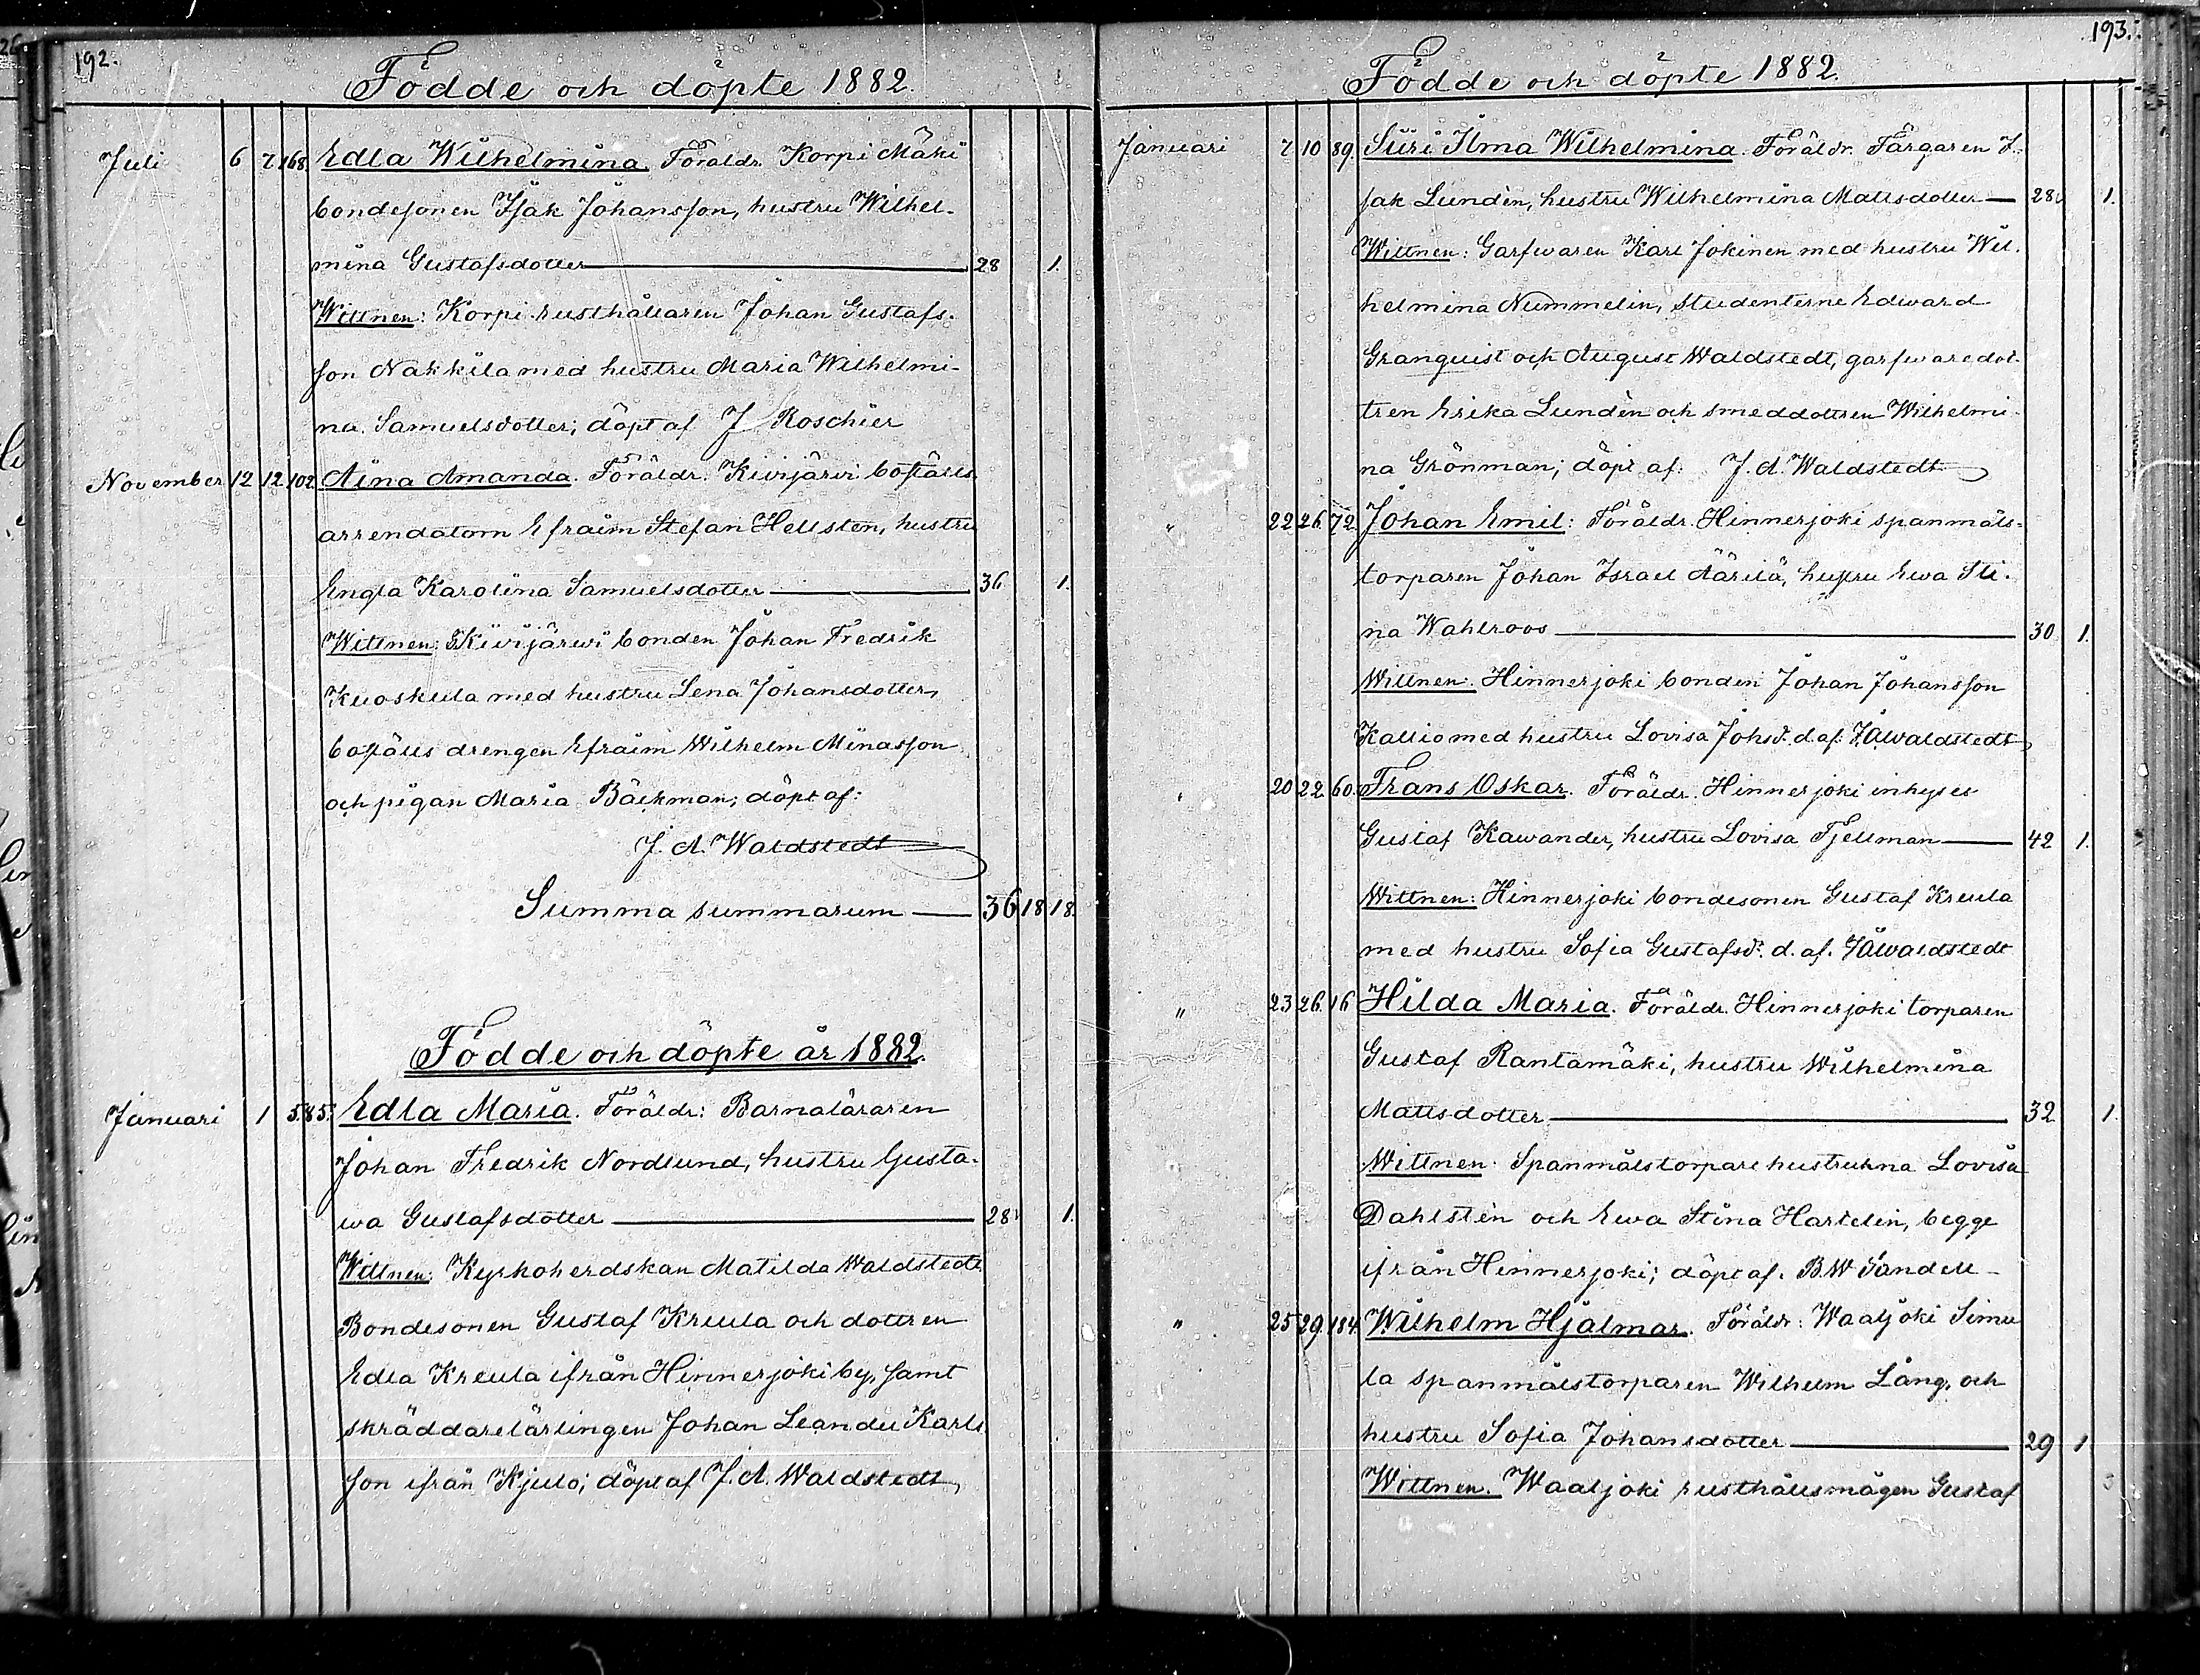 192.
Födde och döpte 1882.
Juli 6 7 168 Edla Wilhelmina. Föräldr. Korpi Mäki
bondesonen Isak Johansson, hustru Wilhel-
mina Gustafsdotter 28 1.
Wittnen: Korpi rusthållaren Johan Gustafs-
son Nakkila med hustru Maria Wilhelmi-
na Samuelsdotter; döpt af J Roschier
November 12 12 102 Aina Amanda. Föräldr. Kivijärvi boställs
arrendatorn Efraim Stefan Hellsten, hustru
Engla Karolina Samuelsdotter 36 1.
Wittnen: Kivijärwi bonden Johan Fredrik
Kuoskula med hustru Lena Johansdotter,
boställs drengen Efraim Wilhelm Minasson
och pigan Maria Bäckman; döpt af:
J. A. Waldstedt
Summa summarum 36 18 18.
Födde och döpte år 1882.
Januari 1 5. 85. Edla Maria. Föräldr: Barnaläraren
Johan Fredrik Nordlund, hustru Gusta-
va Gustafsdotter 28 1.
Wittnen: Kyrkoherdskan Matilda Waldstedt
Bondesonen Gustaf Kreula och dottren
Edla Kreula ifrån Hinnerjoki by, samt
skräddarelärlingen Johan Leander Karls
son ifrån Kjulo; döpt af J. A. Waldstedt,
193.
Födde och döpte 1882.
Januari 7 10 89. Siiri Ilma Wilhelmina. Föräldr. Färgaren I-
sak Lundén, hustru Wilhelmina Mattsdotter 28 1.
Wittnen: Garfwaren Karl Jokinen med hustru Wil-
helmina Nummelin, studenterne Edward
Granquist och August Waldstedt, garfwaredot-
tren Erika Lundén och smeddottren Wilhelmi-
na Grönman; döpt af. J. A. Waldstedt
" 22 26 72 Johan Emil: Föräldr. Hinnerjoki spanmåls-
torparen Johan Israel Äärilä, hustru Ewa Sti-
na Wahlroos 30 1.
Wittnen: Hinnerjoki bonden Johan Johansson
Kallio med hustru Lovisa Johsd. d. af. J A Waldstedt
" 20 22 60. Frans Oskar. Föräldr. Hinnerjoki inhyses
Gustaf Kawander, hustru Lovisa Fjellman 42 1.
Wittnen: Hinnerjoki bondesonen Gustaf Kreula
med hustru Sofia Gustafsd. d. af. J A Waldstedt
" 23 26. 16 Hilda Maria. Föräldr. Hinnerjoki torparen
Gustaf Rantamäki, hustru Wilhelmina
Mattsdotter 32 1.
Wittnen: Spanmålstorpare hustrurna Lovisa
Dahlstén och Ewa Stina Hartelin, begge
ifrån Hinnerjoki; döpt af. B W Sandell
" 25 29 184. Wilhelm Hjalmar. Föräldr: Waaljoki Simu
la spanmålstorparen Wilhelm Lång, och
hustru Sofia Johansdotter 29 1
Wittnen. Waaljoki rusthållsmågen Gustaf